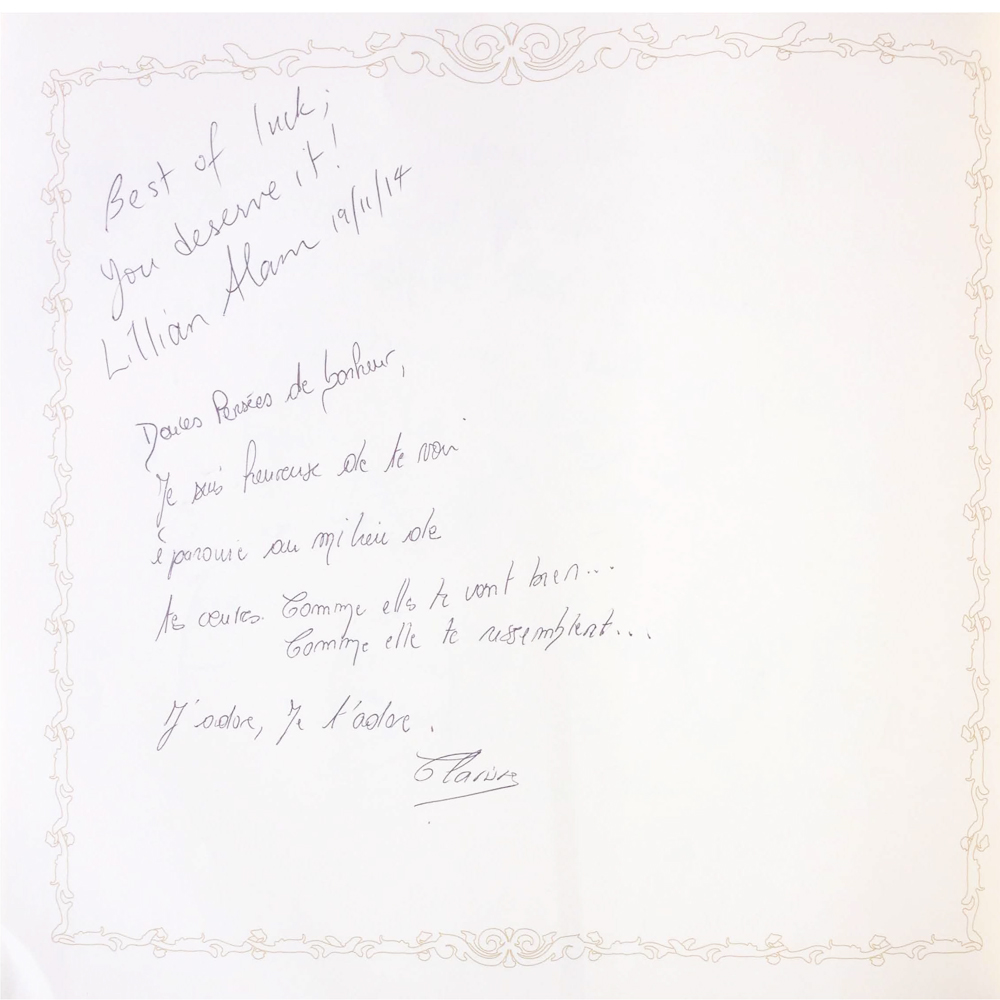 Best of luck;
you deserve it!
Lillian Alam 19/11/14
Douces Pensées de bonheur,
Je suis heureuse de te voir
épanouie au milieu de
tes œuvres. Comme elles te vont bien...
Comme elle te ressemblent...
J'adore, Je t'adore.